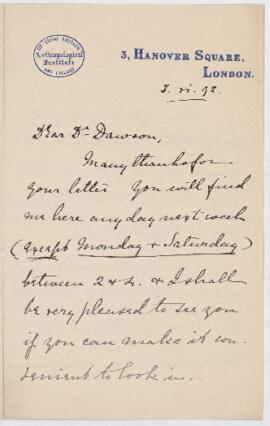 OF GREAT BRITAIN
Anthropological
Institute
AND IRELAND
3, HANOVER SQUARE,
LONDON.
3. vi. 92.
Dear Dr Dawson,
Many thanks for
your letter You will find
me here any day next week
(except Monday & Saturday)
between 2 & 4. & I shall
be very pleased to see you
if you can make it con-
venient to look in.